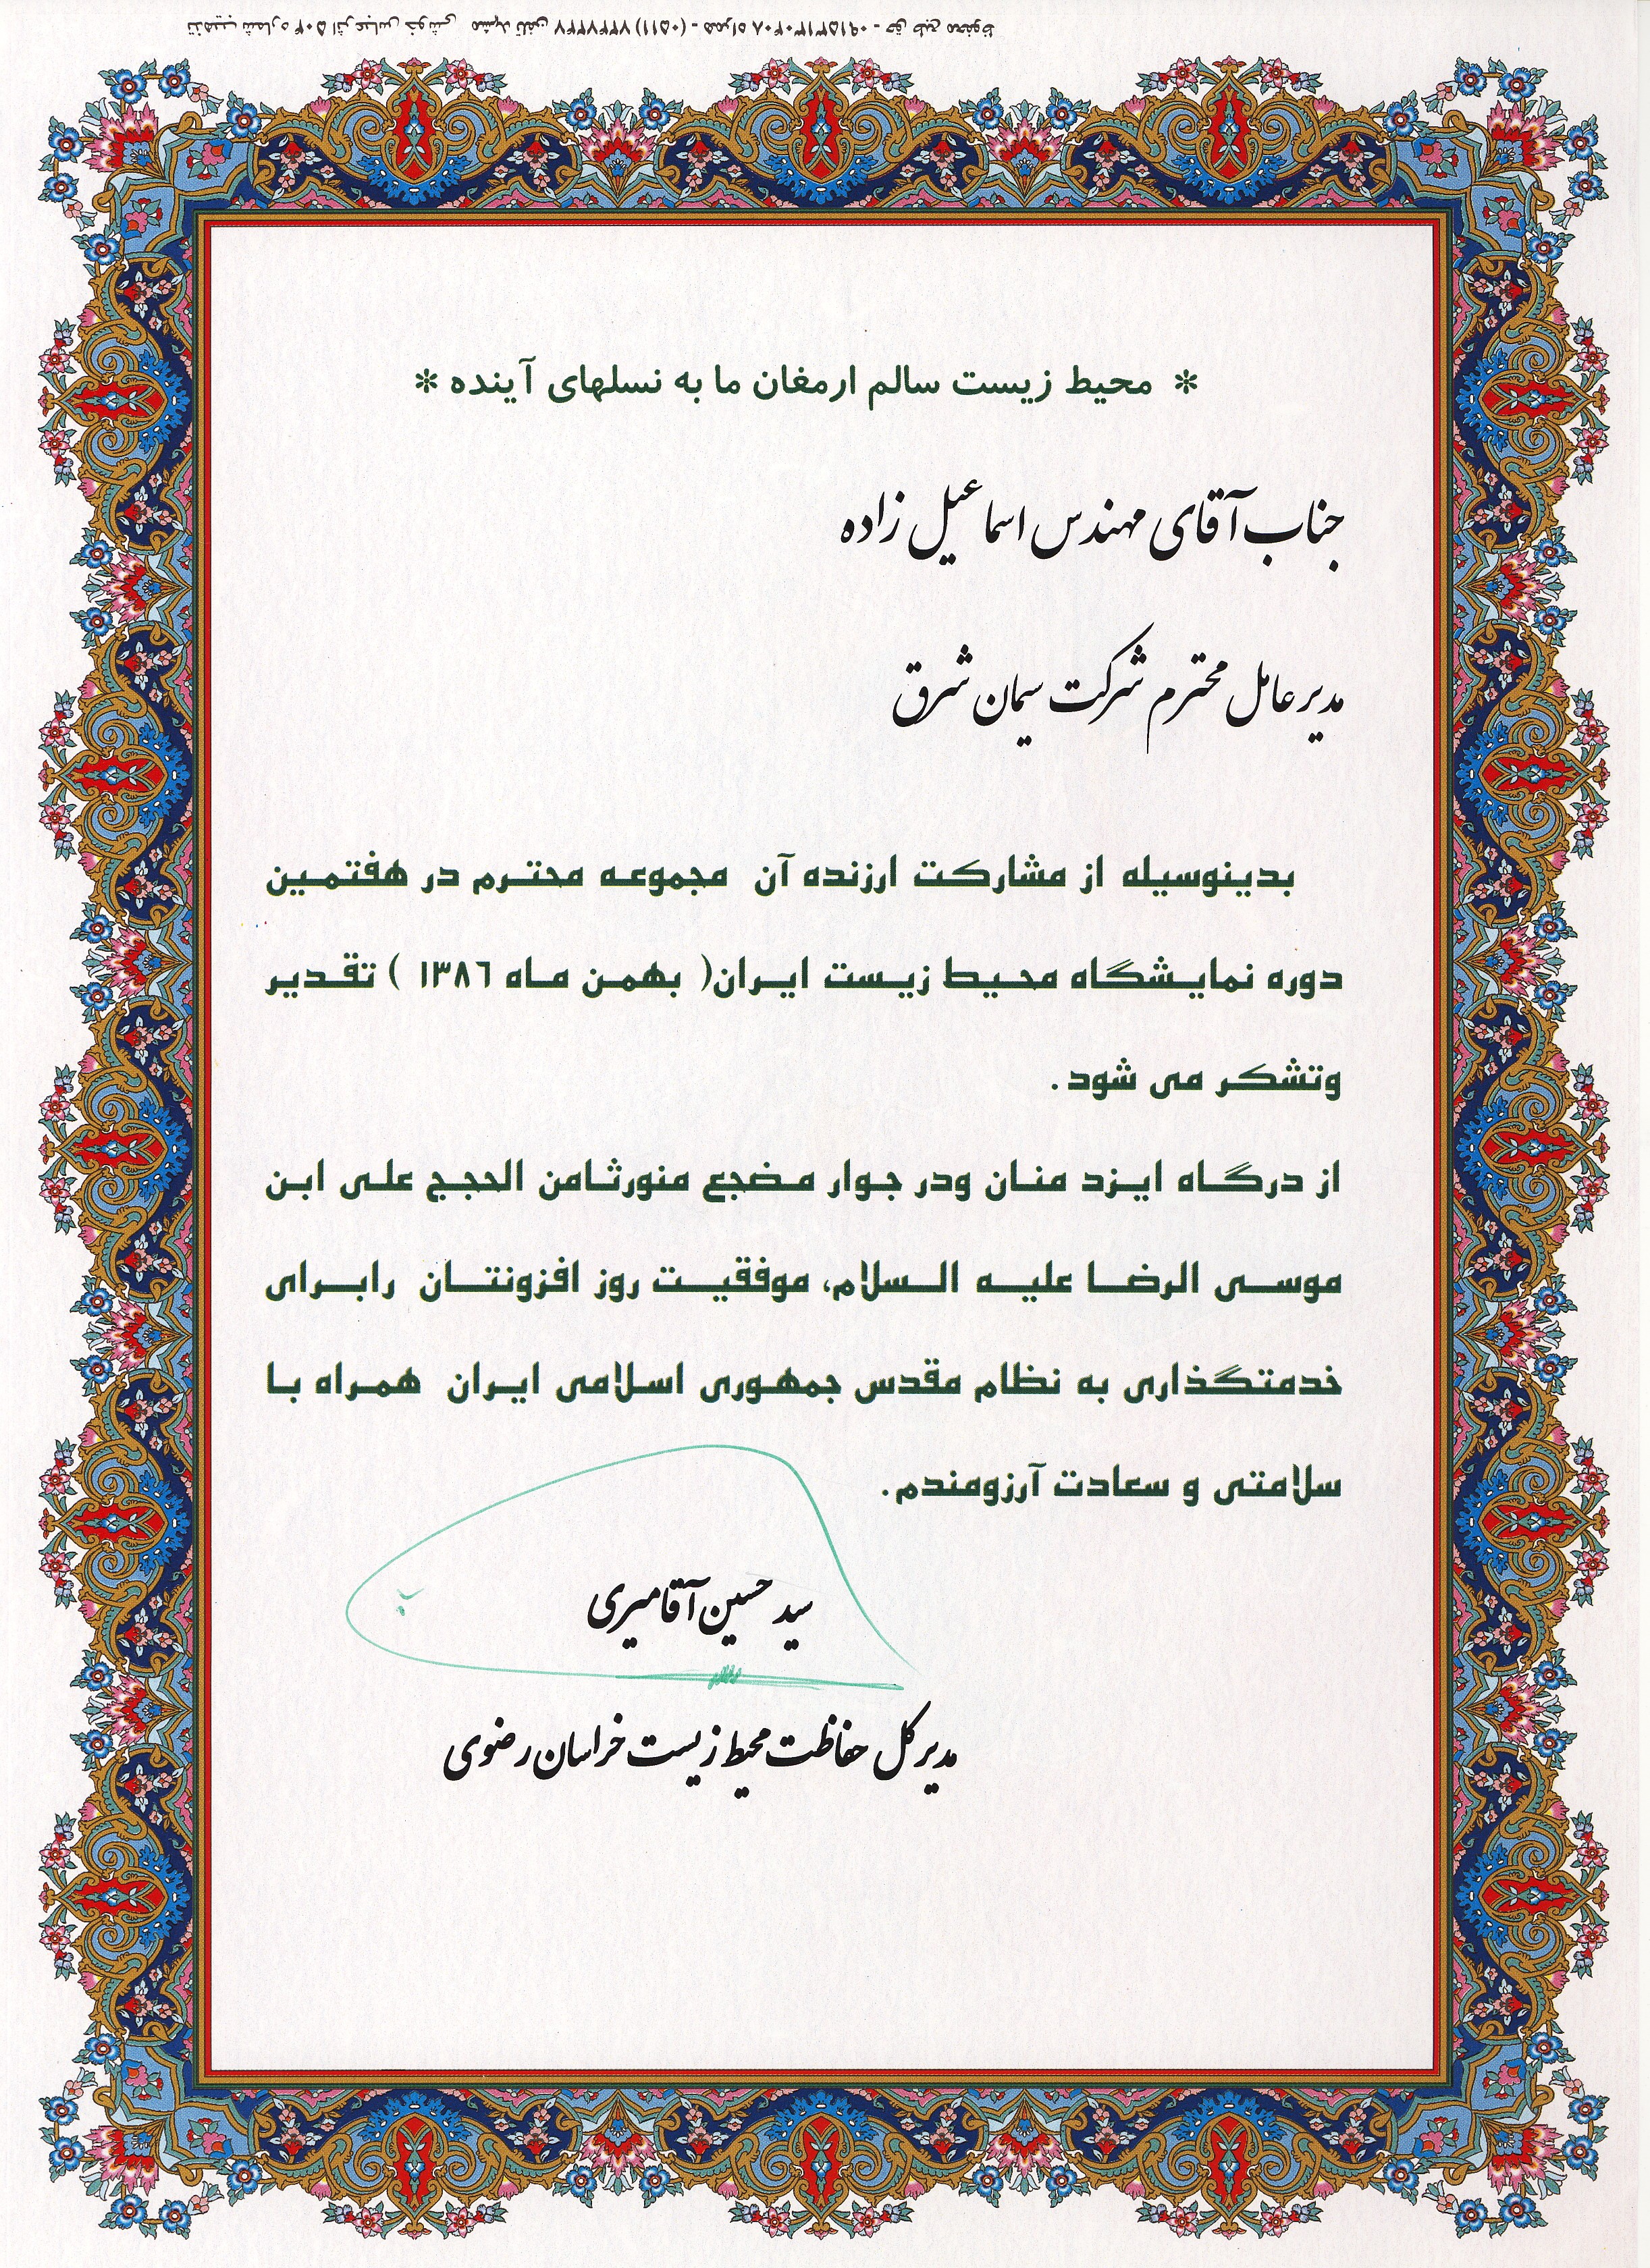 تذهیب شماره ۵۰۴ اثر عباس خوشی مشهد تلفن ۷۲۴۷۲۴۷ (۰۵۱۱) - همراه ۰۹۱۵۳۱۳۰۴۰۸ - حق طبع محفوظ
* محیط زیست سالم ارمغان ما به نسلهای آینده *
جناب آقای مهندس اسماعیل زاده
مدیرعامل محترم شرکت سیمان شرق
بدینوسیله از مشارکت ارزنده آن مجموعه محترم در هفتمین
دوره نمایشگاه محیط زیست ایران( بهمن ماه ۱۳۸۶ ) تقدیر
وتشکر می شود.
از درگاه ایزد منان ودر جوار مضجع منورثامن الحجج علی ابن
موسی الرضا علیه السلام، موفقیت روز افزونتان رابرای
خدمتگذاری به نظام مقدس جمهوری اسلامی ایران همراه با
سلامتی و سعادت آرزومندم.
سید حسین آقامیری
مدیرکل حفاظت محیط زیست خراسان رضوی